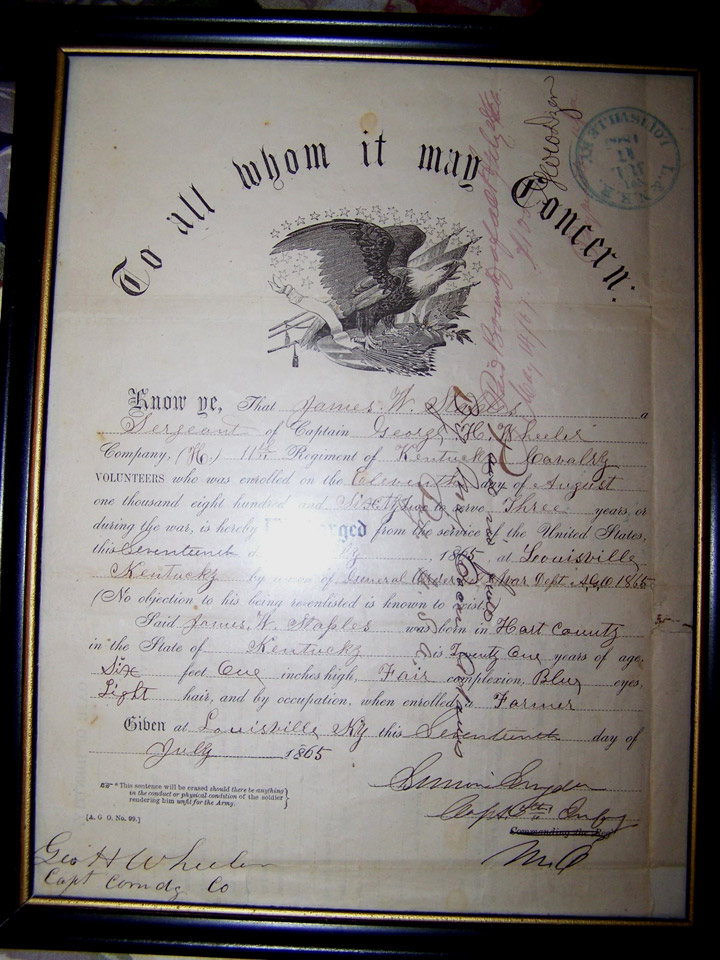 To all whom it may Concern:
Know ye, That James. W. Staples a
Sergeant of Captain George H. Wheeler
Company, (H.) 11th Regiment of Kentucky Cavalry
VOLUNTEERS who was enrolled on the Eleventh day of August
one thousand eight hundred and Sixty two to serve Three years, or
during the war, is hereby Discharged from the service of the United States,
this Seventeenth 1865, at Louisville
Kentucky by General Order War Dept A.G.O. 1865
(No objection to his being re-enlisted is known to exist.
Said James. W. Staples was born in Hart County
in the State of Kentucky is Twenty One years of age,
Six feet One inches high, Fair complexion, Blue eyes,
Light hair, and by occupation, when enrolled, a Farmer
Given at Louisville Ky this Seventeenth day of
July 1865
* This sentence will be erased should there be anything
in the conduct or physical condition of the soldier
rendering him unfit for the Army.
[A. G. O. No. 99.]
Commanding the Reg't
Geo H Wheeler
Capt Comdg Co
LOUISVILLE KY.
Paid Bounty
May 14/67 $100